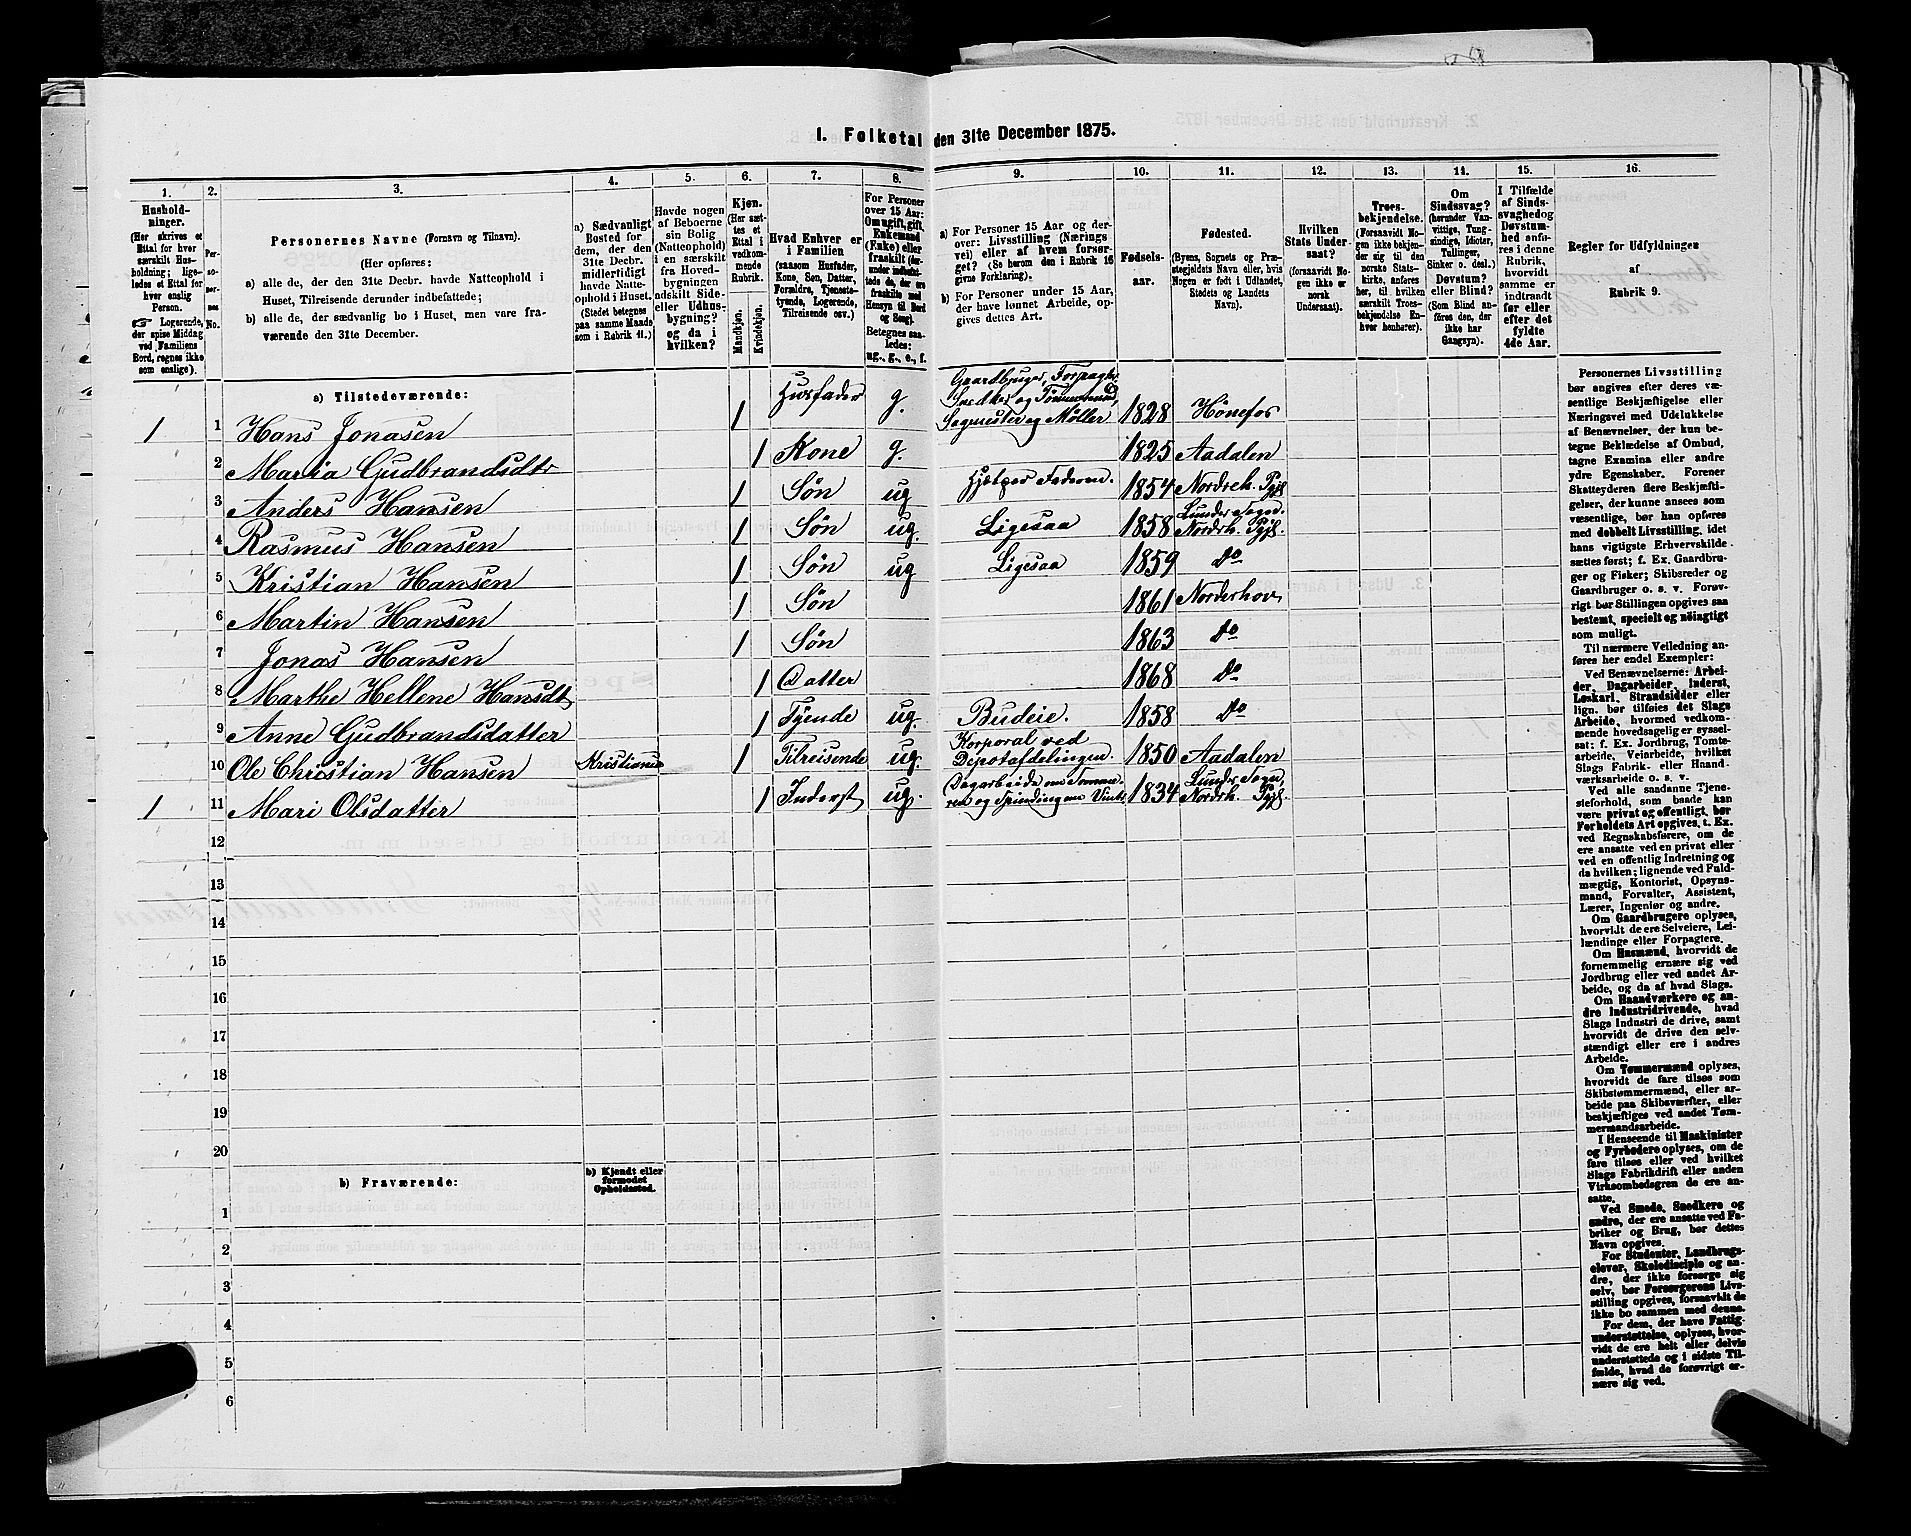 1. Folketal den 31te December 1875.
1.
2.
3.
4.
5.
6.
7.
8.
9.
10.
11.
12.
13.
14.
15.
16.
Hushold-
ninger.
(Her skrives et
Ettal for hver
særskilt Hus-
holdning; lige-
ledes et Ettal for
hver enslig
Person.
☞ Logerende,
der spise Middag
ved Familiens
Bord, regnes ikke
som enslige).
Per-
so-
ner-
nes
No.
Personernes Navne (Fornavn og Tilnavn).
(Her opføres:
a) alle de, der den 31te Decbr. havde Natteophold i
Huset, Tilreisende derunder indbefattede;
b) alle de, der sædvanlig bo i Huset, men vare fra-
værende den 31te December.
a) Sædvanligt
Bosted for
dem, der den
31te Decbr.
midlertidigt
havde Natte-
ophold i Huset.
(Stedet betegnes
paa samme Maade
som i Rubrik 11.)
Havde nogen
af Beboerne
sin Bolig
(Natteophold)
i en særskilt
fra Hoved-
bygningen
adskilt Side-
eller Udhus-
bygning?
og da i
hvilken?
Kjøn.
(Her sæt-
tes et
Ettal i
vedkom-
mende
Rubrik.
Mandkjøn.
Kvindekjøn.
Hvad Enhver er
i Familien
(saasom Husfader,
Kone, Søn, Datter,
Forældre, Tjeneste-
tyende, Logerende,
Tilreisende osv.)
For Personer
over 15 Aar:
Om ugift, gift,
Enkemand
(Enke) eller
fraskilt (der-
under indbefat-
tede de, der ere
fraskilte med
Hensyn til Bord
og Seng).
Betegnes saa-
ledes:
ug., g., e., f.
a) For Personer 15 Aar og der-
over: Livsstilling (Nærings
vei) eller af hvem forsør-
get? (Se herom den i Rubrik 16
givne Forklaring).
b) For Personer under 15 Aar,
der have lønnet Arbeide, op-
gives dettes Art.
Fødsels-
aar.
Fødested.
(Byens, Sognets og Præ-
stegjeldets Navn eller, hvis
Nogen er født i Udlandet,
Stedets og Landets
Navn).
Hvilken
Stats Under-
saat?
(forsaavidt No-
gen ikke er
norsk
Undersaat).
Troes-
bekjendelse.
(Forsaavidt No-
gen ikke bekjen-
der sig til den
norske Stats-
kirke, anføres
her, til hvilken
særskilt Troes-
bekjendelse En-
hver henhører).
Om
Sindssvag?
(herunder Van-
vittige, Tung-
sindige, Idioter,
Tullinger,
Sinker o. desl.)
Døvstum?
eller Blind?
(Som Blind an-
føres den, der
ikke har
Gangsyn).
I Tilfælde
af Sinds-
svaghed og
Døvstum-
hed anfø-
res i denne
Rubrik,
hvorvidt
samme er
indtraadt
før eller
efter det
fyldte
4de Aar.
Regler for Udfyldningen
af
Rubrik 9.
a) Tilstedeværende:
1 1 Hans Jonasen 1 Husfader g. Gaardbruger, Forpagter,
Snedker og Tømmermand,
Sagmester og Møller 1828 Hönefos
2 Maria Gudbrandsdtr 1 Kone g. 1825 Aadalen
3 Anders Hansen 1 Søn ug Hjælper Faderen. 1854 Nordreh. Pgjl
4 Rasmus Hansen 1 Søn ug. Ligesaa 1858 Lunder Sogn.
Nordrh. Pgjl.
5 Kristian Hansen 1 Søn ug Ligesaa 1859 do
6 Martin Hansen 1 Søn 1861 Norderhov
7 Jonas Hansen 1 Søn 1863 do
8 Marthe Hellene Hansdt 1 Datter 1868 do
9 Anne Gudbrandsdatter 1 Tyende ug. Budeie. 1858 do
10 Ole Christian Hansen Kristiania 1 Tilreisende ug. Korporal ved
Depotafdelingen. 1850 Aadalen
1 11 Mari Olsdatter 1 Inderst ug. Dagarbeide om Sommeren
og Spinding om Vint. 1834 Lunder Sogn,
Nordrh. Pgjl.
12
13
14
15
16
17
18
19
20
b) Fraværende:
b) Kjendt eller
formodet
Opholdssted.
1
2
3
4
5
6
Personernes Livsstilling
bør angives efter deres væ-
sentlige Beskjæftigelse eller
Næringsvei med Udelukkelse
af Benævnelser, der kun be-
tegne Beklædelse af Ombud,
tagne Examina eller andre
ydre Egenskaber. Forener
Skatteyderen flere Beskjæfti-
gelser, der kunne ansees som
væsentlige, bør han opføres
med dobbelt Livsstilling, idet
hans vigtigste Erhvervskilde
sættes først; f. Ex. Gaardbru-
ger og Fisker; Skibsreder og
Gaardbruger o. s. v. Forøv-
rigt bør Stillingen opgives saa
bestemt, specielt og nöiagtigt
som muligt.
Til nærmere Veiledning an-
føres her endel Exempler:
Ved Benævnelserne: Arbei-
der, Dagarbeider, Inderst,
Løskarl, Strandsidder eller
lign. bør tilføies det Slags
Arbeide, hvormed vedkom-
mende hovedsagelig er syssel-
sat; f. Ex. Jordbrug, Tomte-
arbeide, Veiarbeide, hvilket
Slags Fabrik- eller Haand-
værksarbeide o. s. v.
Ved alle saadanne Tjene-
steforhold, som baade kan
være privat og offentligt, bør
Forholdets Art opgives, t. Ex.
ved Regnskabsførere, om de
ere ansatte ved en privat eller
ved en offentlig Indretning og
da hvilken; lignende ved Fuld-
mægtig, Kontorist, Opsyns-
mand, Forvalter, Assistent,
Lærer, Ingeniør og andre.
Om Gaardbrugere oplyses,
hvorvidt de ere Selveiere, Lei-
lændinge eller Forpagtere.
Om Husmænd, hvorvidt de
fornemmelig ernære sig ved
Jordbrug eller ved andet Ar-
beide, og da af hvad Slags.
Om Haandværkere og an-
dre Industridrivende, hvad
Slags Industri de drive, samt
hvorvidt de drive den selv-
stændigt eller ere i andres
Arbeide.
Om Tømmermænd oplyses,
hvorvidt de fare tilsøs som
Skibstømmermænd, eller ar-
beide paa Skibsværfter, eller
beskjæftiges ved andet Tøm-
mermandsarbeide.
I Henseende til Maskinister
og Fyrbødere oplyses, om de
fare tilsøs eller ved hvilket
Slags Fabrikdrift eller anden
Virksombedsgren de ere an-
satte.
Ved Smede, Snedkere og
andre, der ere ansatte ved Fa-
briker og Brug, bør dettes
Navn opgives.
For Studenter, Landbrugs-
elever, Skoledisciple og an-
dre, der ikke forsørge sig
selv, bør Forsørgerens Livs-
stilling opgives, forsaavidt de
ikke bo sammen med denne.
For dem, der have Fattig-
understøttelse, oplyses, hvor-
vidt de ere helt eller delvis
understøttede og i sidste Til-
fælde, hvad de forøvrigt er-
nære sig ved.